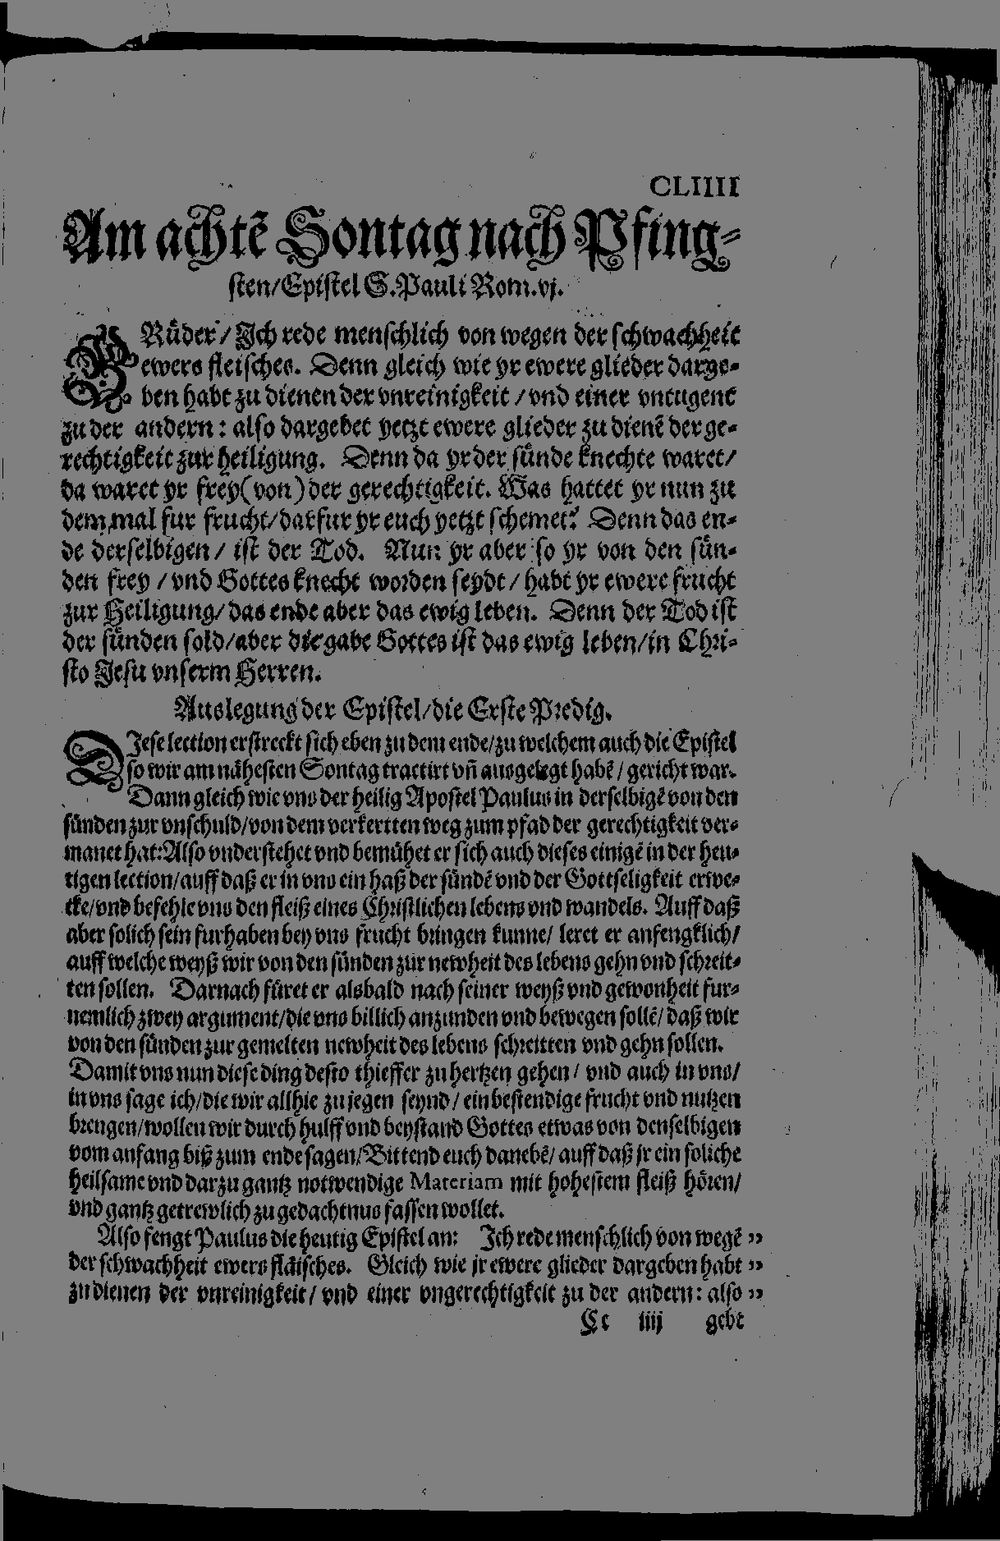 CLIIII
Am achtẽ Sontag nach Pfing-
sten/Epistel S. Pauli Rom. vj.
BRüder/Ich rede menschlich von wegen der schwachheit
ewers fleisches. Denn gleich wie yr ewere glieder darge-
ben habt zu dienen der vnreinigkeit/vnd einer vntugent
zu der andern: also dargebet yetzt ewere glieder zu dienẽ der ge-
rechtigkeit zur heiligung. Denn da yr der sünde knechte waret/
da waret yr frey(von)der gerechtigkeit. Was hattet yr nun zu
dem mal fur frucht/darfur yr euch yetzt schemet? Denn das en-
de derselbigen/ist der Tod. Nun yr aber so yr von den sün-
den frey/vnd Gottes knecht worden seydt/habt yr ewere frucht
zur Heiligung/das ende aber das ewig leben. Denn der Tod ist
der sünden sold/aber die gabe Gottes ist das ewig leben/in Chri-
sto Jesu vnserm Herren.
Auslegung der Epistel/die Erste Predig.
DIese lection erstreckt sich eben zu dem ende/zu welchem auch die Epistel
so wir am nähesten Sontag tractirt vñ ausgelegt habẽ/gericht war.
Dann gleich wie vns der heilig Apostel Paulus in derselbigẽ von den
sünden zur vnschuld/von dem verkertten weg zum pfad der gerechtigkeit ver-
manet hat: Also vnderstehet vnd bemühet er sich auch dieses einigẽ in der heu-
tigen lection/auff daß er in vns ein haß der sündẽ vnd der Gottseligkeit erwe-
cke/vnd befehle vns den fleiß eines Christlichen lebens vnd wandels. Auff daß
aber solich sein furhaben bey vns frucht bringen kunne/leret er anfengklich/
auff welche weyß wir von den sünden zur newheit des lebens gehn vnd schreit-
ten sollen. Darnach füret er alsbald nach seiner weyß vnd gewonheit fur-
nemlich zwey argument/die vns billich anzunden vnd bewegen sollẽ/daß wir
von den sünden zur gemelten newheit des lebens schreitten vnd gehn sollen.
Damit vns nun diese ding desto thieffer zu hertzen gehen/vnd auch in vns/
in vns sage ich/die wir allhie zu jegen seynd/ein bestendige frucht vnd nutzen
brengen/wollen wir durch hulff vnd beystand Gottes etwas von denselbigen
vom anfang biß zum ende sagen/Bittend euch danebẽ/auff daß jr ein soliche
heilsame vnd darzu gantz notwendige Materiam mit hohestem fleiß hören/
vnd gantz getrewlich zu gedachtnus fassen wollet.
Also fengt Paulus die heutig Epistel an: Ich rede menschlich von wegẽ ”
der schwachheit ewers fläisches. Gleich wie jr ewere glieder dargeben habt ”
zu dienen der vnreinigkeit/vnd einer vngerechtigkeit zu der andern: also ”
Cc iiij gebt